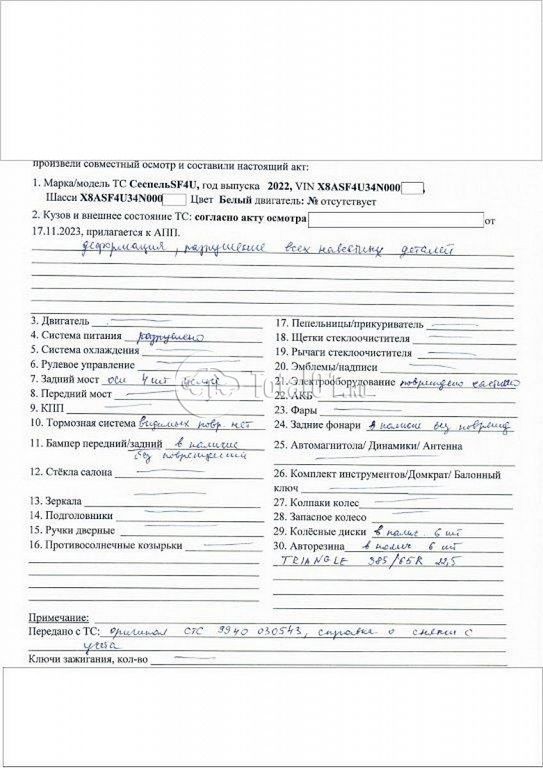 произвели совместный осмотр и составили настоящий акт:
1. Марка/модель ТС СеспельSF4U, год выпуска 2022, VIN X8ASF4U34N000 ,
Шасси X8ASF4U34N000 Цвет Белый двигатель: № отсутствует
2. Кузов и внешнее состояние ТС: согласно акту осмотра от
17.11.2023, прилагается к АПП.
деформация, разрушение всех навесных деталей
3. Двигатель
4. Система питания разрушено
5. Система охлаждения
6. Рулевое управление
7. Задний мост оси 4 шт
8. Передний мост
9. КПП
10. Тормозная система видимых повр. нет
11. Бампер передний/задний в наличие
без повреждений
12. Стёкла салона
13. Зеркала
14. Подголовники
15. Ручки дверные
16. Противосолнечные козырьки
17. Пепельницы/прикуриватель
18. Щетки стеклоочистителя
19. Рычаги стеклоочистителя
20. Эмблемы/надписи
21. Электрооборудование повреждено частично
22. АКБ
23. Фары
24. Задние фонари в наличие без поврежд
25. Автомагнитола/ Динамики/ Антенна
26. Комплект инструментов/Домкрат/ Балонный
ключ
27. Колпаки колес
28. Запасное колесо
29. Колёсные диски в налич. 6 шт
30. Авторезина в налич 6 шт
TRIANGLE 385/65R 22,5
Примечание:
Передано с ТС: оригинал СТС 9940 030543, справка о снятии с
учета
Ключи зажигания, кол-во